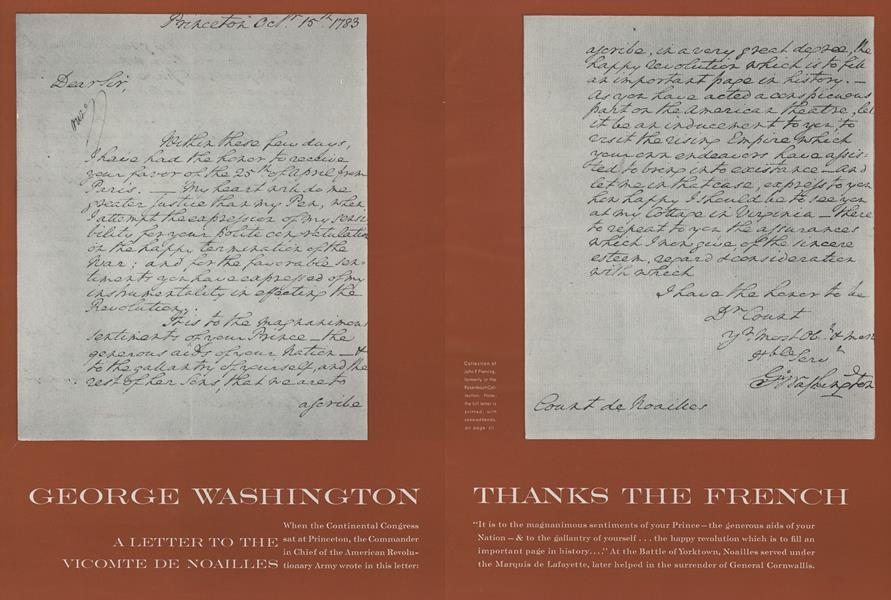 Princeton Octr. 15th. 1783
Dear Sir,
Within these few days,
I have had the honor to receive
your favor of the 25th of April from
Paris. — My heart will do me
greater Justice than my Pen, when
I attempt the expression of my sensi-
bility for your polite congratulation
on the happy termination of the
War; and for the favorable sen-
timents you have expressed of my
instrumentality in effecting the
Revolution.
It is to the magnanimous
sentiments of your Prince — the
generous aids of your Nation — &
to the gallantry of yourself, and the
rest of her Sons, that we are to
ascribe
ascribe, in a very great degree, the
happy revolution which is to fill
an important page in history. —
As you have acted a conspicuous
part on the American theatre, let
it be an inducement to you to
visit the rising Empire which
your own endeavors have assis-
ted to bring into existance — and
let me in that case, express to you
how happy I should be to see you
at my Cottage in Virginia — there
to repeat to you the assurances
which I now give of the sincere
esteem, regard & consideration
with which
I have the honor to be
Dr. Count
Yr. most Ob. & mos
Hble Serv
Go Washington
Count de Noailles
Collection of
John F. Fleming,
formerly in the
Rosenbach Col-
lection. Note:
the full letter is
printed, with
on page
GEORGE WASHINGTON
A LETTER TO THE
VICOMTE DE NOAILLES
When the Continental Congress
sat at Princeton, the Commander
in Chief of the American Revolu-
tionary Army wrote in this letter:
THANKS THE FRENCH
"It is to the magnanimous sentiments of your Prince—the generous aids of your
Nation—& to the gallantry of yourself . . . the happy revolution which is to fill an
important page in history...." At the Battle of Yorktown, Noailles served under
the Marquis de Lafayette, later helped in the surrender of General Cornwallis.